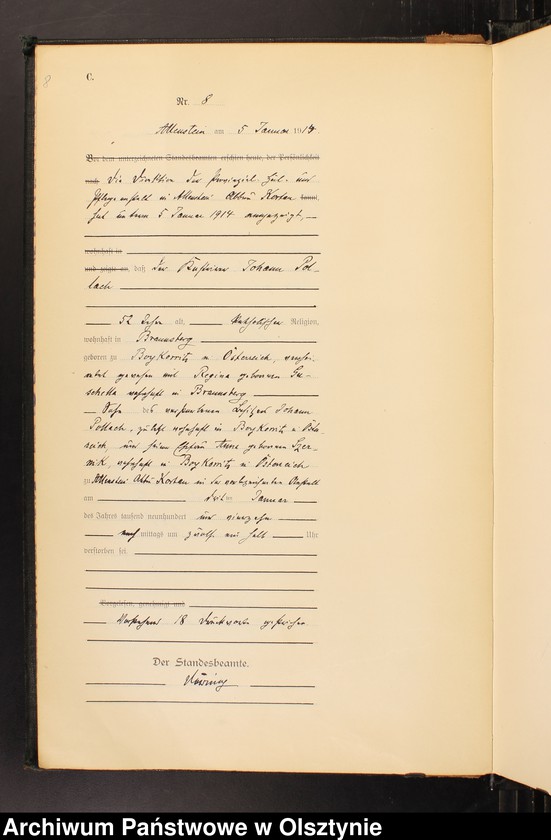 8
C.
Nr. 8
Allenstein am 5 Januar 1914
Vor dem unterzeichneten Standesbeamten erschien heute, der Persönlichkeit
nach Die Direktion der Provinzial Heil- und
Pflegeanstalt in Allenstein Abbau Kortau kannt,
hat unterm 5 Januar 1914 angezeigt,
wohnhaft in
und zeigte an, daß der Johann Pol-
lach
52 Jahre alt, katholischer Religion,
wohnhaft in Braunsberg
geboren zu in Österreich, verhei-
ratet gewesen mit Regina geborenen
wohnhaft in Braunsberg
Sohn des verstorbenen Besitzers Johann
Pollach, zuletzt wohnhaft in in Öster-
reich, und seiner Ehefrau Anna geborenen
wohnhaft in in Österreich
zu Allenstein Abbau Kortau in der vorbezeichneten Anstalt
am dritten Januar
des Jahres tausend neunhundert und vierzehn
nachmittags um zwölf ein halb Uhr
verstorben sei.
Vorgelesen, genehmigt und
Vorstehend 18 Druckworte gestrichen
Der Standesbeamte.
Archiwum Państwowe w Olsztynie